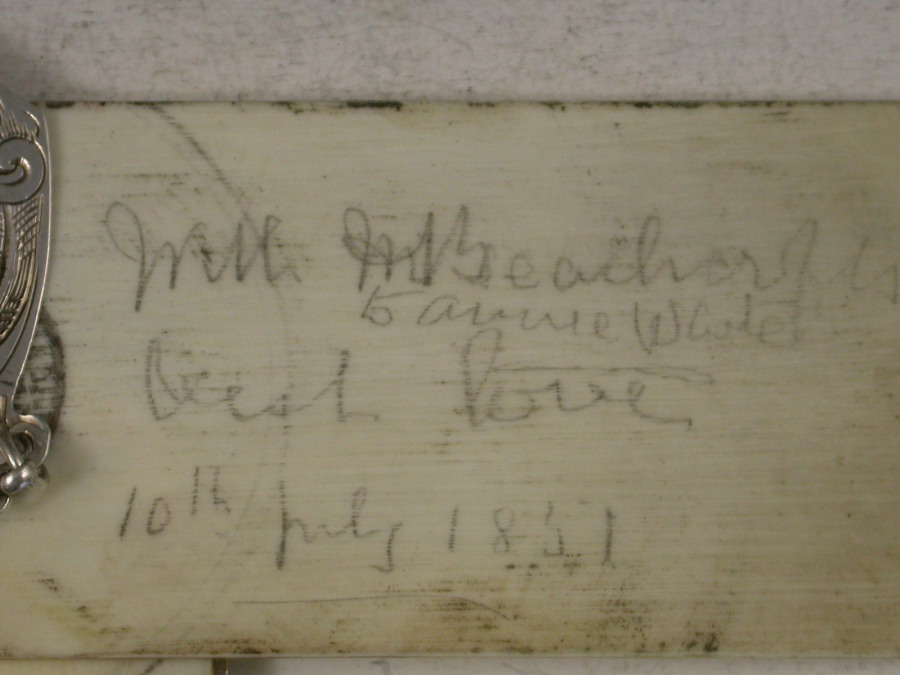 With Mr Beacher
to annie White
Best Love
10th July 1851